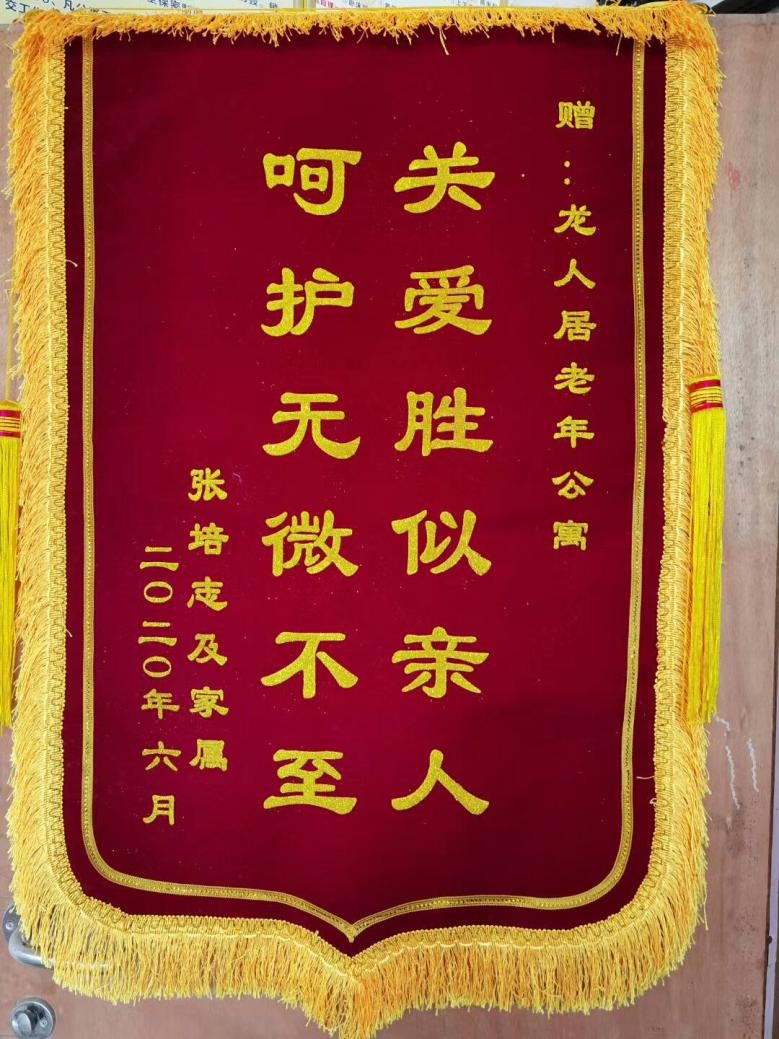 赠：龙人居老年公寓
关爱胜似亲人
呵护无微不至
张培志及家属
二〇二〇年六月